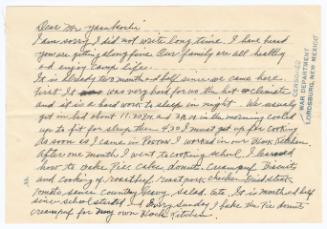 Dear Mr
I am sorry I did not write long time. I have heard
you are getting along fine. Our family are all healthy
and enjoy camp life.
It is already two month and half since we came here.
First It was very hard for us the hot climate
and it is a hard work to sleep in night. We usually
get in bed about 11.30 P.M. and in the morning cooled
up to fit for sleep then 4.30 I must get up for cooking
As soon as I came in I worked in our Block Kitchen.
After one month I went to cooking school. I learned
how to bake Pie cake donuts. Creampuff Biscuits
and cooking of roast beef. roast pork, chicken.
tomato, sauce Country Gravy. Salad. etc. It is month and half
since school started. Every sunday I bake the Pie donuts
creampuff for my own Block Kitchen.
CENSORED
WAR DEPARTMENT
LORDSBURG NEW MEXICO